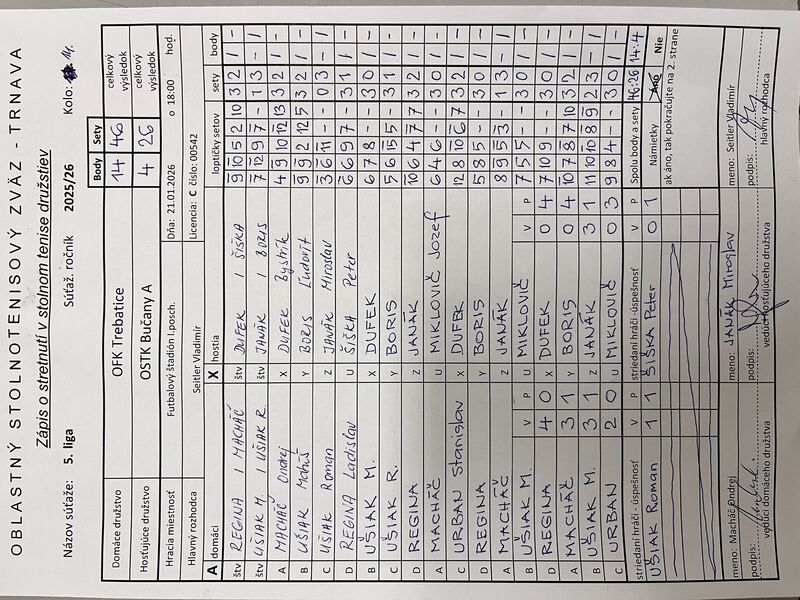 OBLASTNÝ STOLNOTENISOVÝ ZVÄZ - TRNAVA
Zápis o stretnutí v stolnom tenise družstiev
Názov súťaže: 5. liga Súťaž. ročník 2025/26 Kolo: 14.
Body Sety
Domáce družstvo OFK Trebatice 14 46 celkový výsledok
Hosťujúce družstvo OSTK Bučany A 4 26 celkový výsledok
Hracia miestnosť Futbalový štadión I.posch. Dňa: 21.01.2026 o 18:00 hod.
Hlavný rozhodca Seitler Vladimír Licencia: C číslo: 00542
A domáci X hostia loptičky setov sety body
štv REGINA / MACHÁČ štv DUFEK / ŠIŠKA 9 10 5 2 10 3 2 1 -
štv UŠIAK M. / UŠIAK R. štv JANÁK / BORIS 7 12 9 7 - 1 3 - 1
A MACHÁČ Ondrej X DUFEK Bystrík 4 9 10 12 13 3 2 1 -
B UŠIAK Matúš Y BORIS Ľudovít 9 9 2 12 5 3 2 1 -
C UŠIAK Roman Z JANÁK Miroslav 3 6 11 - - 0 3 - 1
D REGINA Ladislav U ŠIŠKA Peter 6 6 9 7 - 3 1 1 -
B UŠIAK M. X DUFEK 6 7 8 - - 3 0 1 -
C UŠIAK R. Y BORIS 5 6 15 5 - 3 1 1 -
D REGINA Z JANÁK 10 6 4 7 7 3 2 1 -
A MACHÁČ U MIKLOVIČ Jozef 6 4 6 - - 3 0 1 -
C URBAN Stanislav X DUFEK 12 8 10 6 7 3 2 1 -
D REGINA Y BORIS 5 8 5 - - 3 0 1 -
A MACHÁČ Z JANÁK 8 9 5 3 - 1 3 - 1
B UŠIAK M. V P U MIKLOVIČ V P 7 5 5 - - 3 0 1 -
D REGINA 4 0 X DUFEK 0 4 7 10 9 - - 3 0 1 -
A MACHÁČ 3 1 Y BORIS 0 4 10 7 8 7 10 3 2 1 -
B UŠIAK M. 3 1 Z JANÁK 3 1 11 10 10 8 9 2 3 - 1
C URBAN 2 0 U MIKLOVIČ 0 3 9 8 4 - - 3 0 1 -
striedaní hráči -úspešnosť V P striedaní hráči -úspešnosť V P Spolu body a sety 46:26 14:4
UŠIAK Roman 1 1 ŠIŠKA Peter 0 1 Námietky Áno Nie
ak áno, tak pokračujte na 2. strane
meno: Macháč Ondrej meno: JANÁK Miroslav meno: Seitler Vladimír
podpis: podpis: podpis:
vedúci domáceho družstva vedúci hosťujúceho družstva hlavný rozhodca